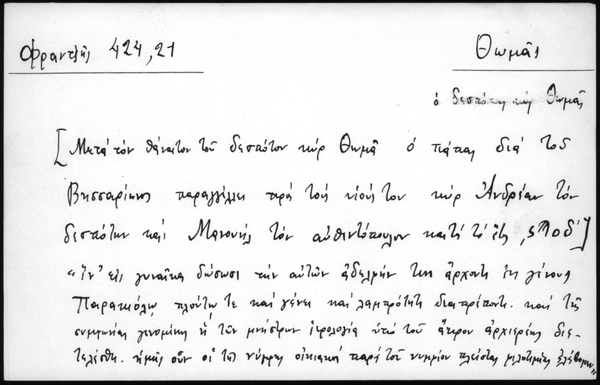 Φραντζῆς 424,21
Θωμᾶς
ὁ δεσπότης κὺρ Θωμᾶς
[Μετά τόν θάνατον τοῦ δεσπότου κύρ Θωμᾶ ὁ πάπας διά τοῦ
Βησσαρίωνος παραγγέλλει πρός τούς υἱούς του κύρ Ἀνδρέαν τόν
δεσπότην καί Μανουήλ τόν αὐθεντόπουλον κατά τό ἔτος ,ςϠοδ']
"ἵν' εἰς γυναῖκα δώσωσι τήν αὐτῶν ἀδελφήν τινι ἄρχοντι ἐκ γένους
Παρακιόλω, πλούτῳ τε καί γένει καί λαμπρότητι διαπρέποντι. καί τῆς
συμφωνίας γενομένης ἡ τῶν μνήστρων ἱερολογία ὑπό τοῦ ἄκρου ἀρχιερέως διε-
τελέσθη. ἡμεῖς οὖν οἱ τῆς νύμφης οἰκειακοί παρά τοῦ νυμφίου πλείστας φιλοτιμίας ἐλάβομεν"